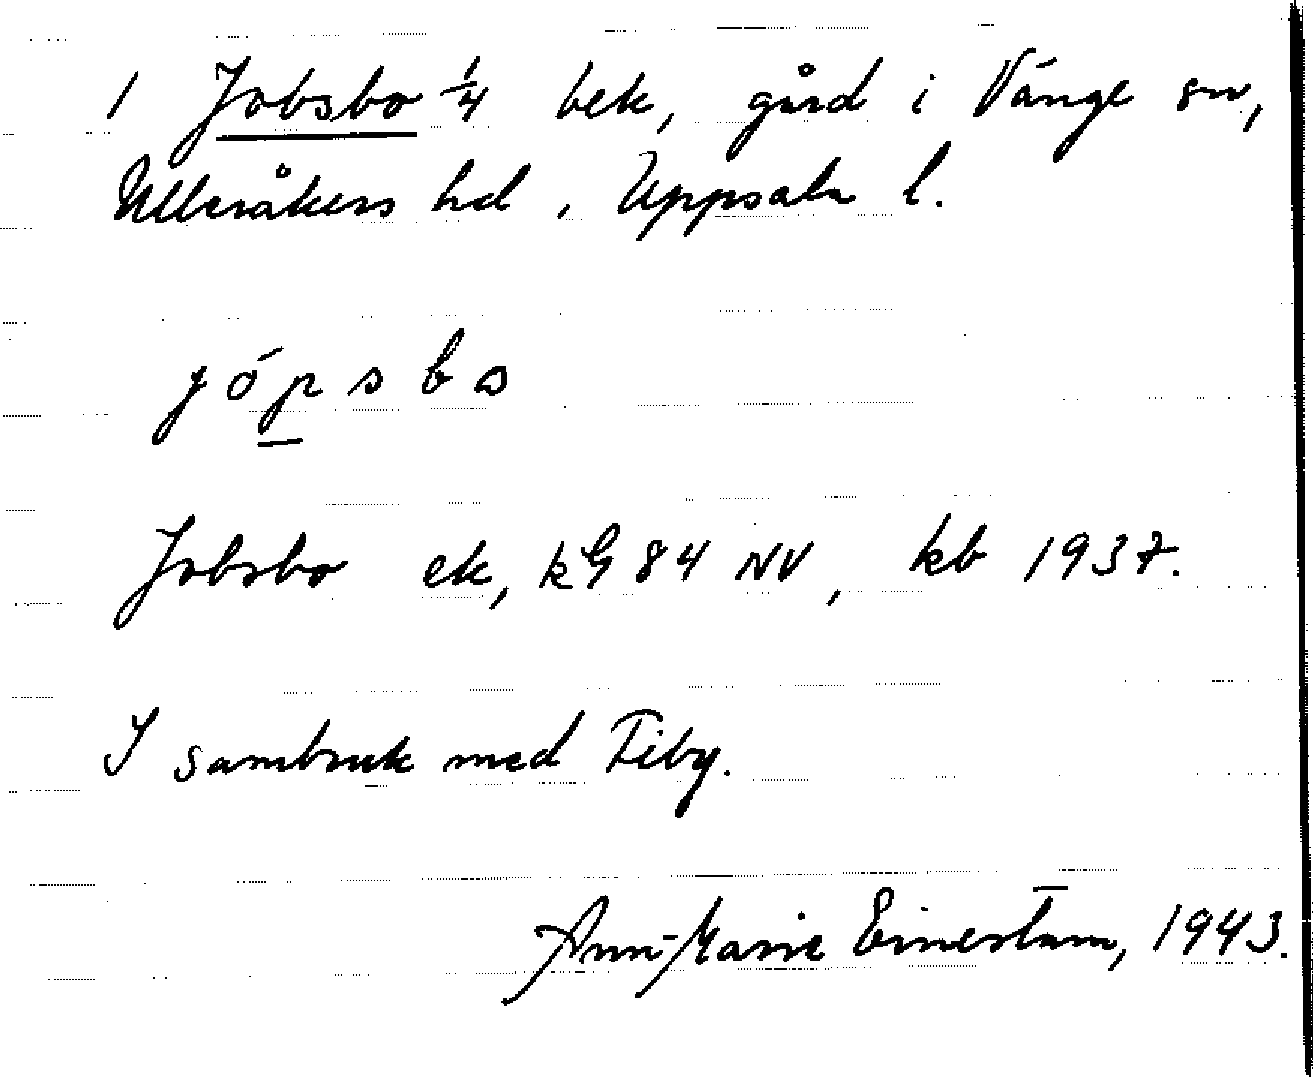 1 Jobsbo 1/4 bek, gård i Vänge sn,
Ulleråkers hd, Uppsala l.
jópsbo
Jobsbo ek, kG 84 NV, kb 1937.
I sambruk med Fiby.
Ann-Marie Einerstam, 1943.